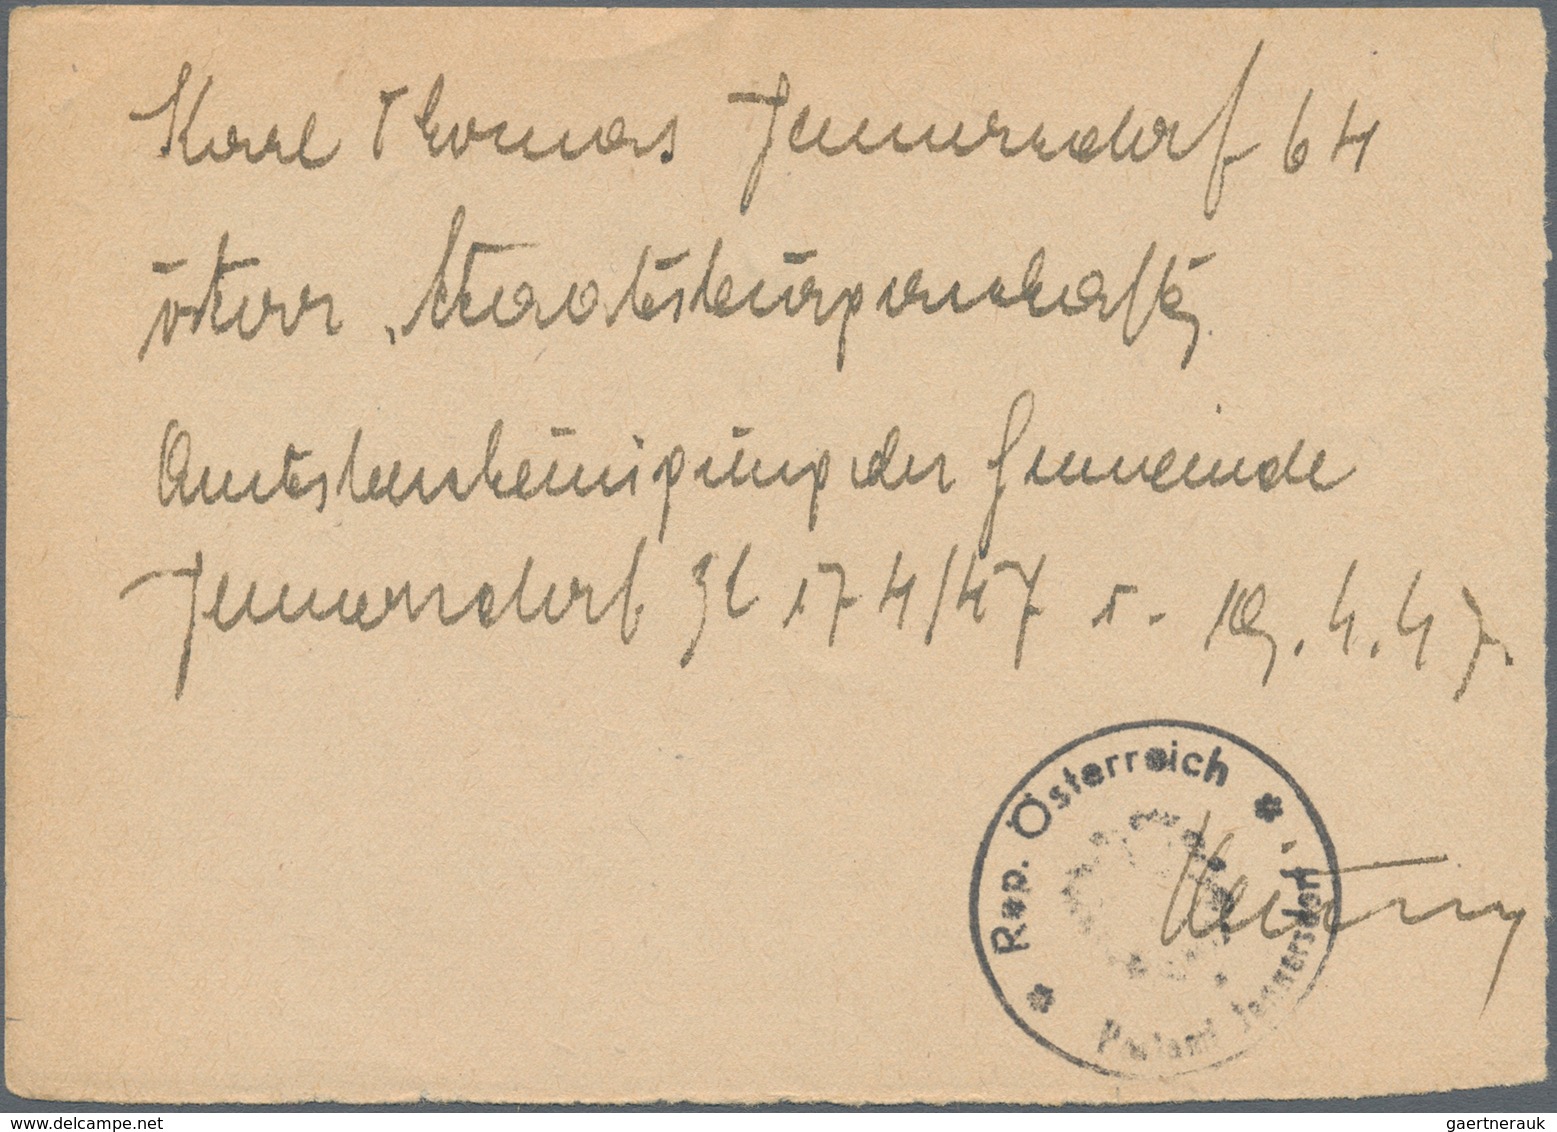 Karl Thomas Jennersdorf 64
österr. Staatsbürgerschaft
Amtsbescheinigung der Gemeinde
Jennersdorf Zl 174/47 v. 19.4.47.
* Rep. Österreich *
Postamt Jennersdorf
gaertnerauk@delcampe.net